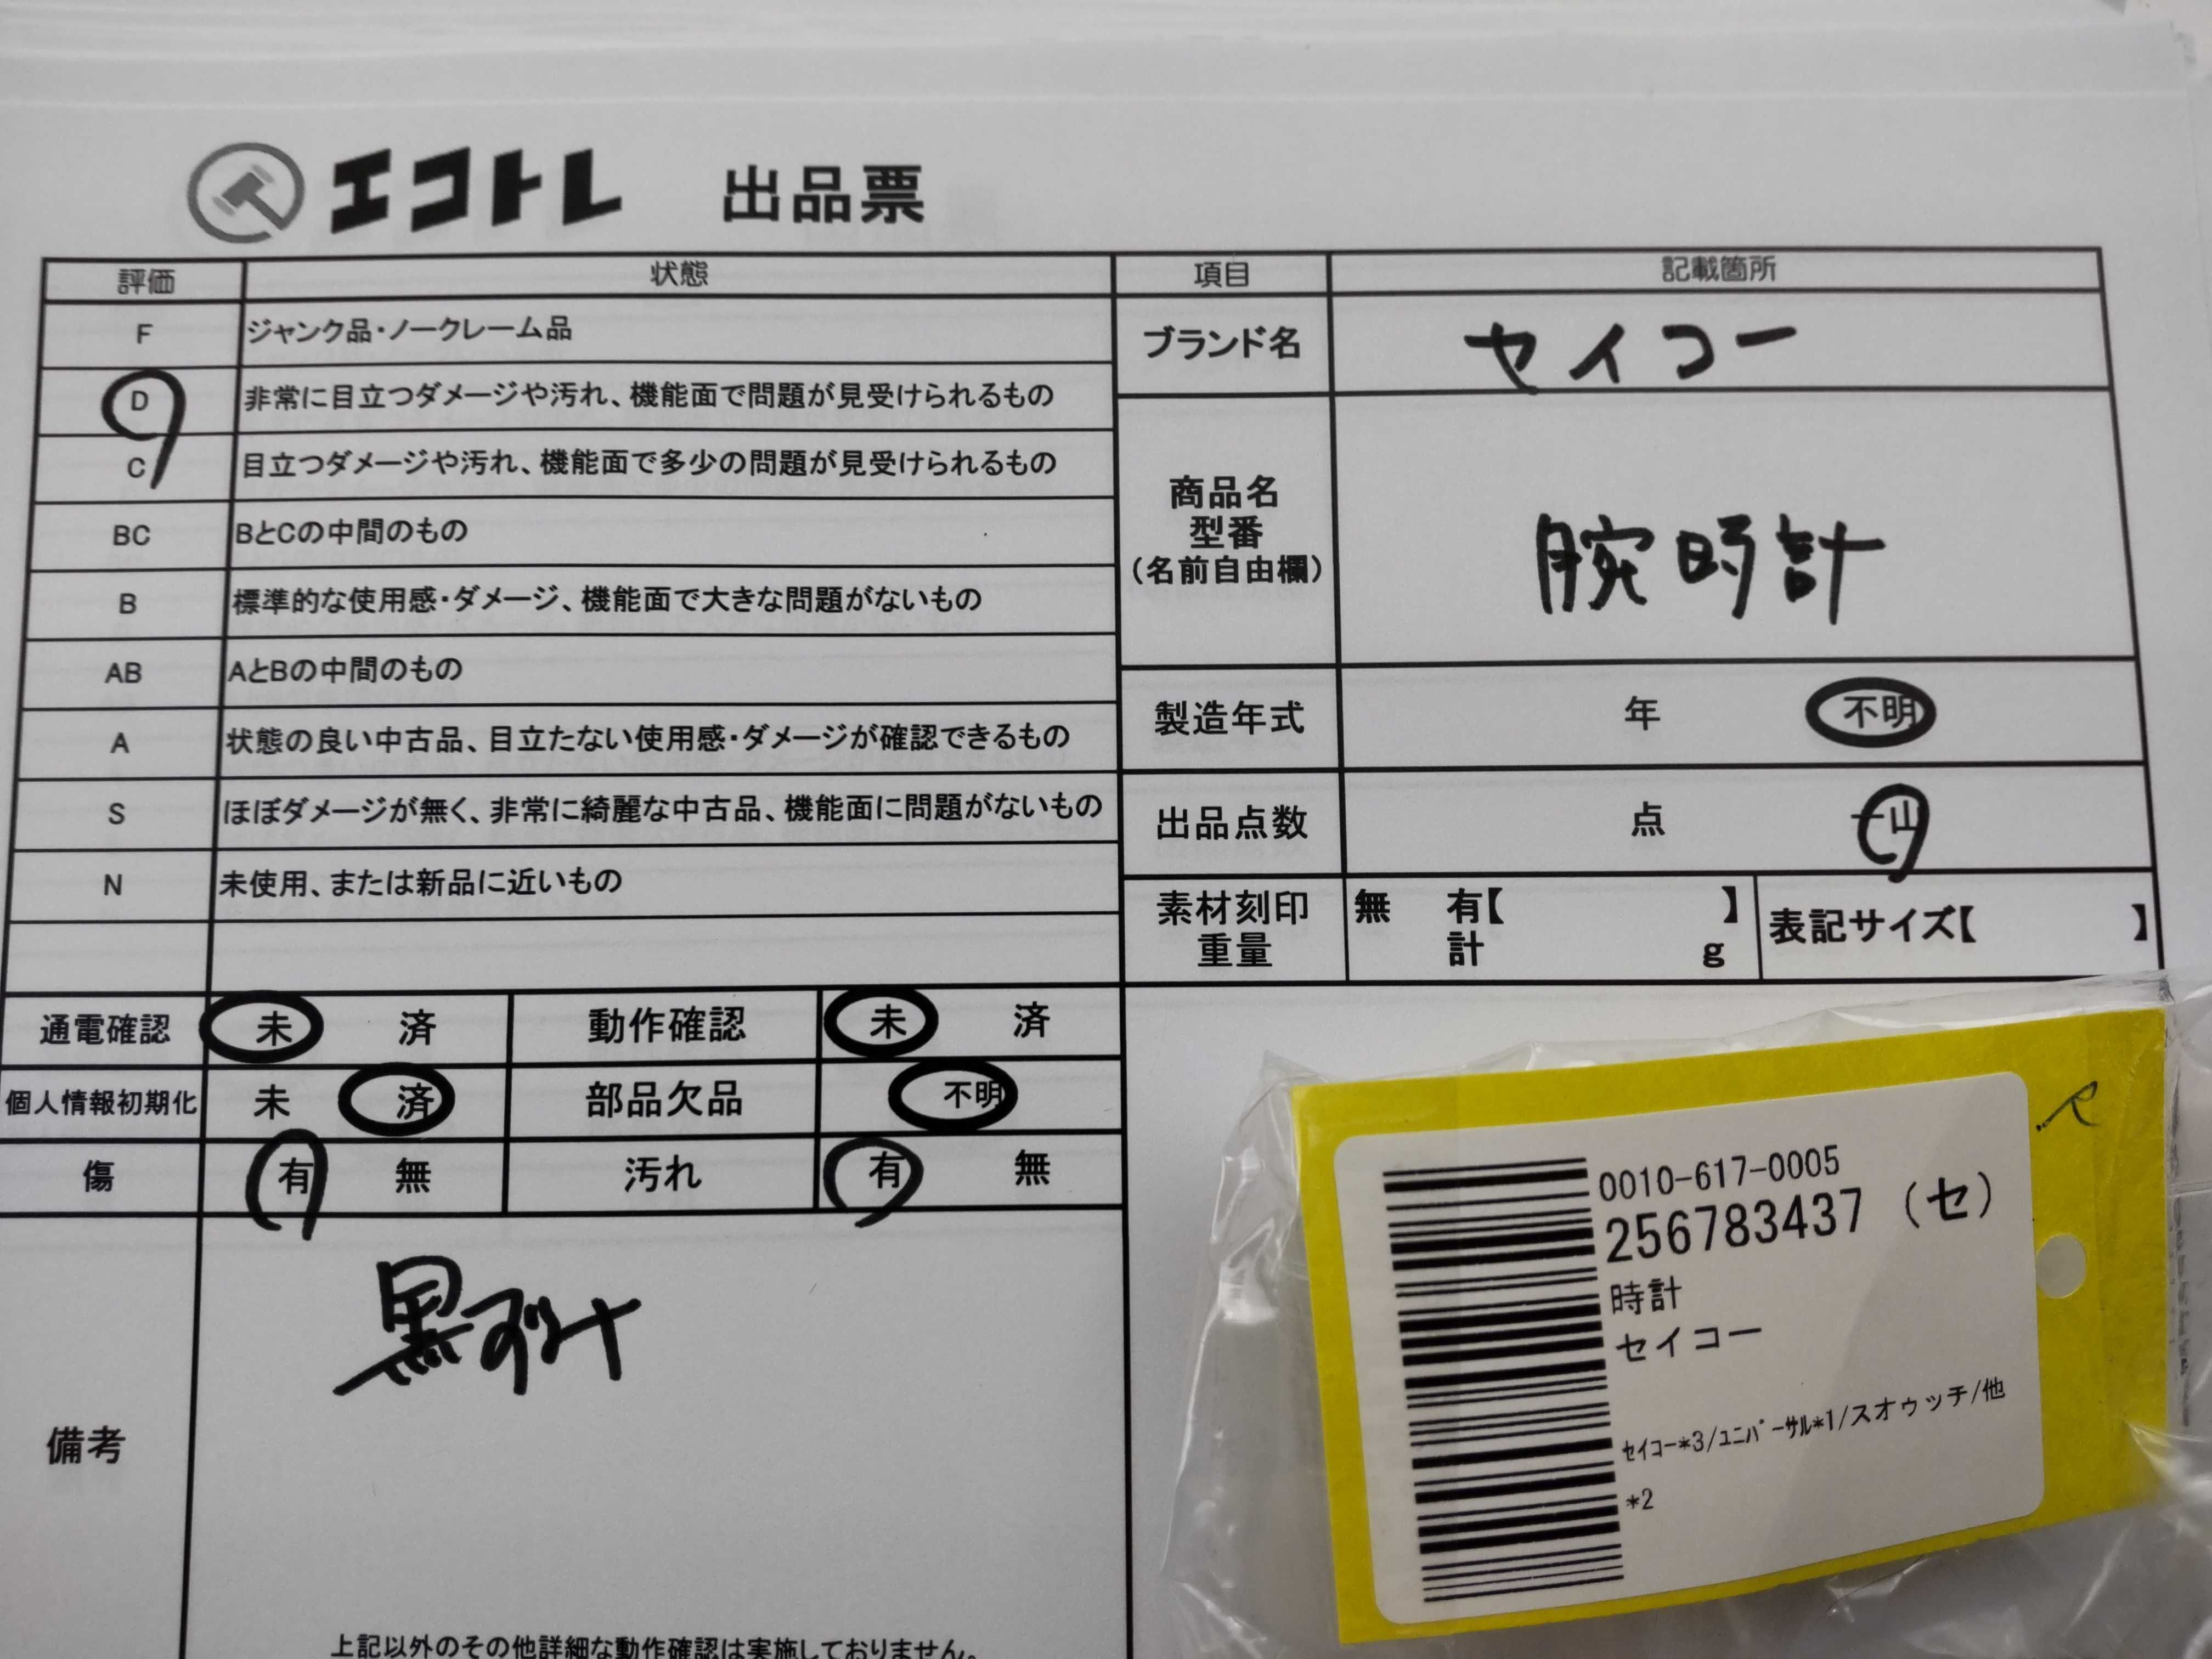 エコトレ 出品票
評価 状態 項目 記載箇所
F ジャンク品・ノークレーム品
D 非常に目立つダメージや汚れ、機能面で問題が見受けられるもの
C 目立つダメージや汚れ、機能面で多少の問題が見受けられるもの
BC BとCの中間のもの
B 標準的な使用感・ダメージ、機能面で大きな問題がないもの
AB AとBの中間のもの
A 状態の良い中古品、目立たない使用感・ダメージが確認できるもの
S ほぼダメージが無く、非常に綺麗な中古品、機能面に問題がないもの
N 未使用、または新品に近いもの
ブランド名 セイコー
商品名
型番
(名前自由欄)
腕時計
製造年式 年 不明
出品点数 点 一山
素材刻印 無 有【 】
重量 計 g
表記サイズ【 】
通電確認 未 済 動作確認 未 済
個人情報初期化 未 済 部品欠品 不明
傷 有 無 汚れ 有 無
備考
黒
上記以外のその他詳細な動作確認は実施しておりません。
0010-617-0005
256783437 (セ)
時計
セイコー
セイコー*3/ユニバーサル*1/スオゥッチ/他
*2